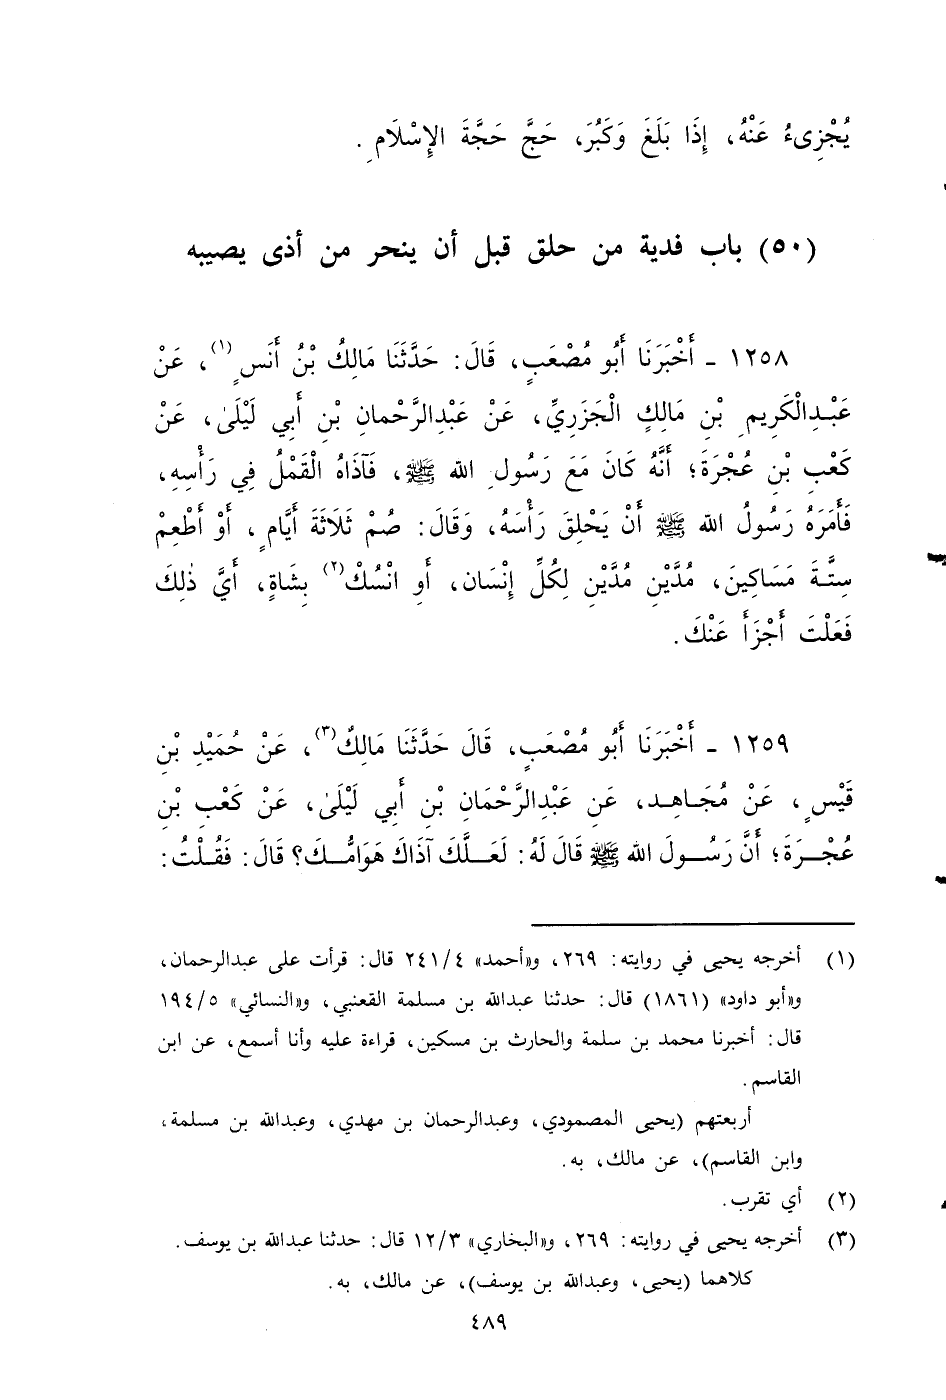 يُجْزِىءُ عَنْهُ، إِذَا بَلَغَ وَكَبُرَ، حَجَّ حَجَّةَ الإِسْلَامِ.
(٥٠) باب فدية من حلق قبل أن ينحر من أذى يصيبه
١٢٥٨ ـ أَخْبَرَنَا أَبُو مُصْعَبٍ، قَالَ: حَدَّثَنَا مَالِكُ بْنُ أَنَسٍ(١)، عَنْ
عَبْدِالْكَرِيمِ بْنِ مَالِكٍ الْجَزَرِيِّ، عَنْ عَبْدِالرَّحْمانِ بْنِ أَبِي لَيْلَىٰ، عَنْ
كَعْبِ بْنِ عُجْرَةَ؛ أَنَّهُ كَانَ مَعَ رَسُولِ الله ﷺ، فَآذَاهُ الْقَمْلُ فِي رَأْسِهِ،
فَأَمَرَهُ رَسُولُ الله ﷺ أَنْ يَحْلِقَ رَأْسَهُ، وَقَالَ: صُمْ ثَلَاثَةَ أَيَّامٍ، أَوْ أَطْعِمْ
سِتَّةَ مَسَاكِينَ، مُدَّيْنِ مُدَّيْنِ لِكُلِّ إِنْسَانٍ، أَو انْسُكْ(٢) بِشَاةٍ، أَيَّ ذٰلِكَ
فَعَلْتَ أَجْزَأَ عَنْكَ.
١٢٥٩ ـ أَخْبَرَنَا أَبُو مُصْعَبٍ، قَالَ حَدَّثَنَا مَالِكٌ(٣)، عَنْ حُمَيْدِ بْنِ
قَيْسٍ، عَنْ مُجَاهِد، عَنِ عَبْدِالرَّحْمَانِ بْنِ أَبِي لَيْلَىٰ، عَنْ كَعْبِ بْنِ
عُجْرَةَ؛ أَنَّ رَسُولَ الله ﷺ قَالَ لَهُ: لَعَلَّكَ آذَاكَ هَوَامُّكَ؟ قَالَ: فَقُلْتُ:
(١) أخرجه يحيى في روايته: ٢٦٩، و«أحمد» ٢٤١/٤ قال: قرأت على عبدالرحمان،
و«أبو داود» (١٨٦١) قال: حدثنا عبدالله بن مسلمة القعنبي، و«النسائي» ١٩٤/٥
قال: أخبرنا محمد بن سلمة والحارث بن مسكين، قراءة عليه وأنا أسمع، عن ابن
القاسم.
أربعتهم (يحيى المصمودي، وعبدالرحمان بن مهدي، وعبدالله بن مسلمة،
وابن القاسم)، عن مالك، به.
(٢) أي تقرب.
(٣) أخرجه يحيى في روايته: ٢٦٩، و«البخاري» ١٢/٣ قال: حدثنا عبدالله بن يوسف.
كلاهما (يحيى، وعبدالله بن يوسف)، عن مالك، به.
٤٨٩